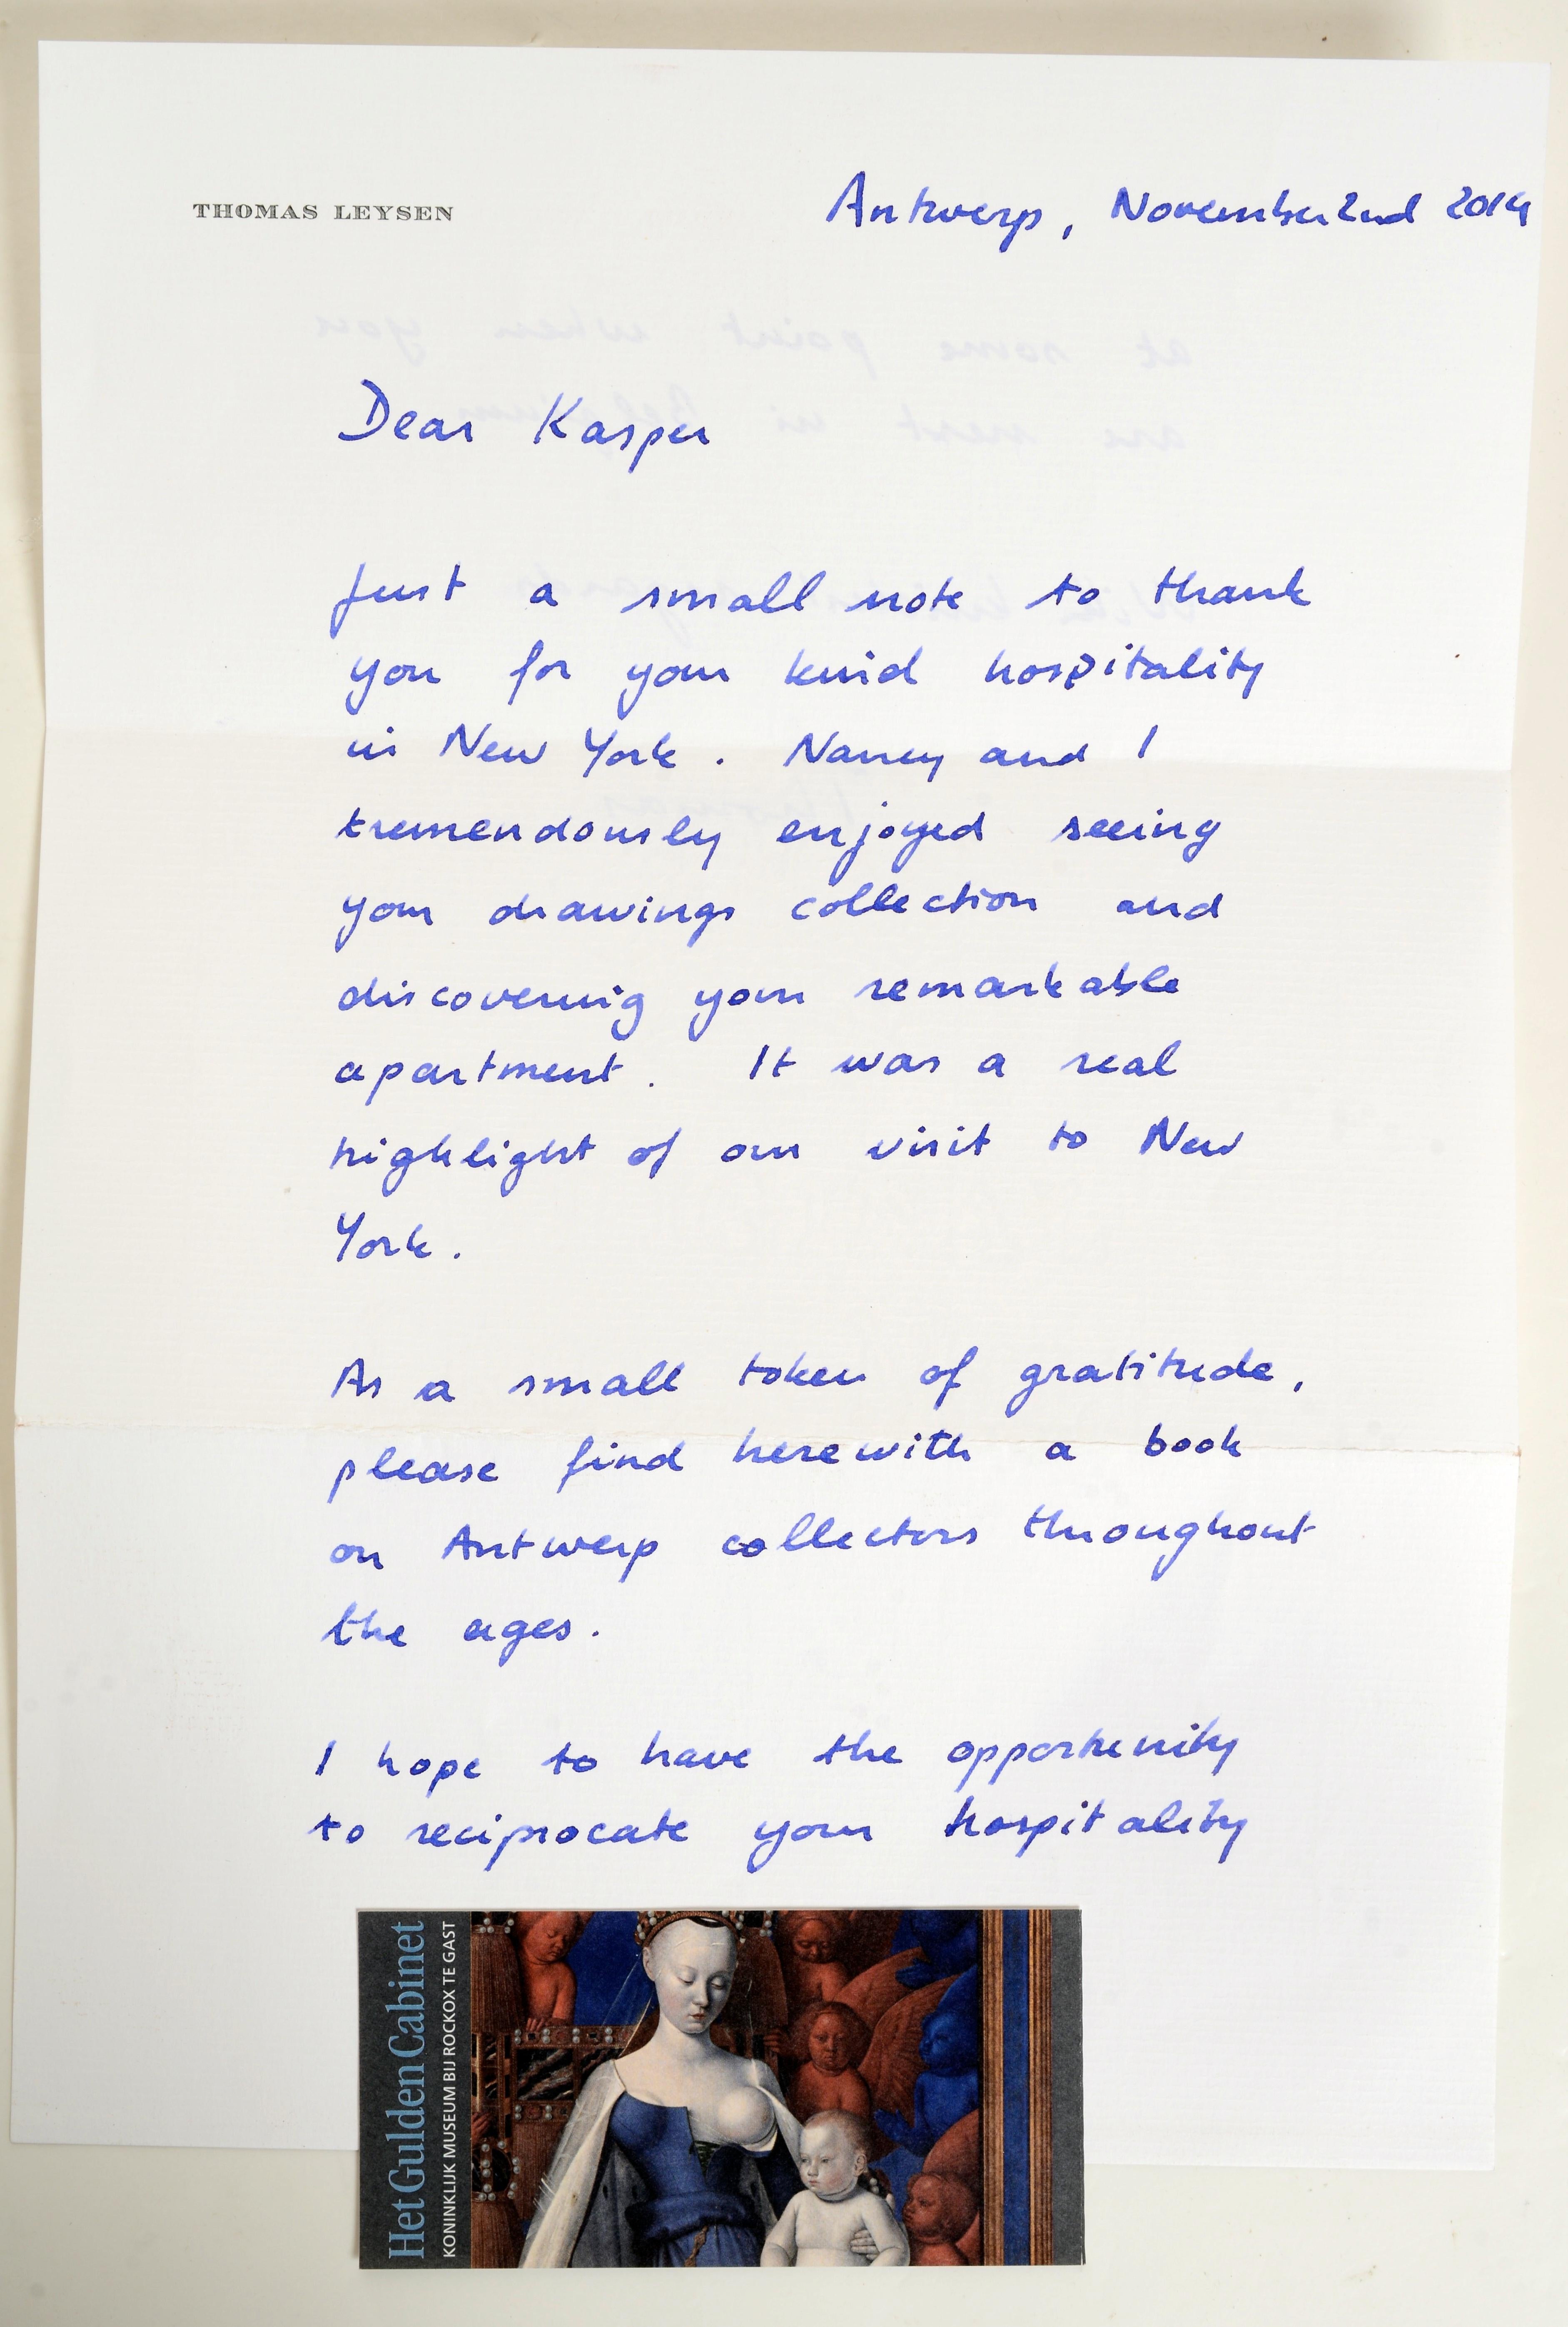 THOMAS LEYSEN
Antwerp, November 2nd 2014
Dear Kasper
Just a small note to thank
you for your kind hospitality
in New York. Nancy and I
tremendously enjoyed seeing
your drawings collection and
discovering your remarkable
apartment. It was a real
highlight of our visit to New
York.
As a small token of gratitude,
please find herewith a book
on Antwerp collectors throughout
the ages.
I hope to have the opportunity
to reciprocate your hospitality
Het Gulden Cabinet
KONINKLIJK MUSEUM BIJ ROCKOX TE GAST